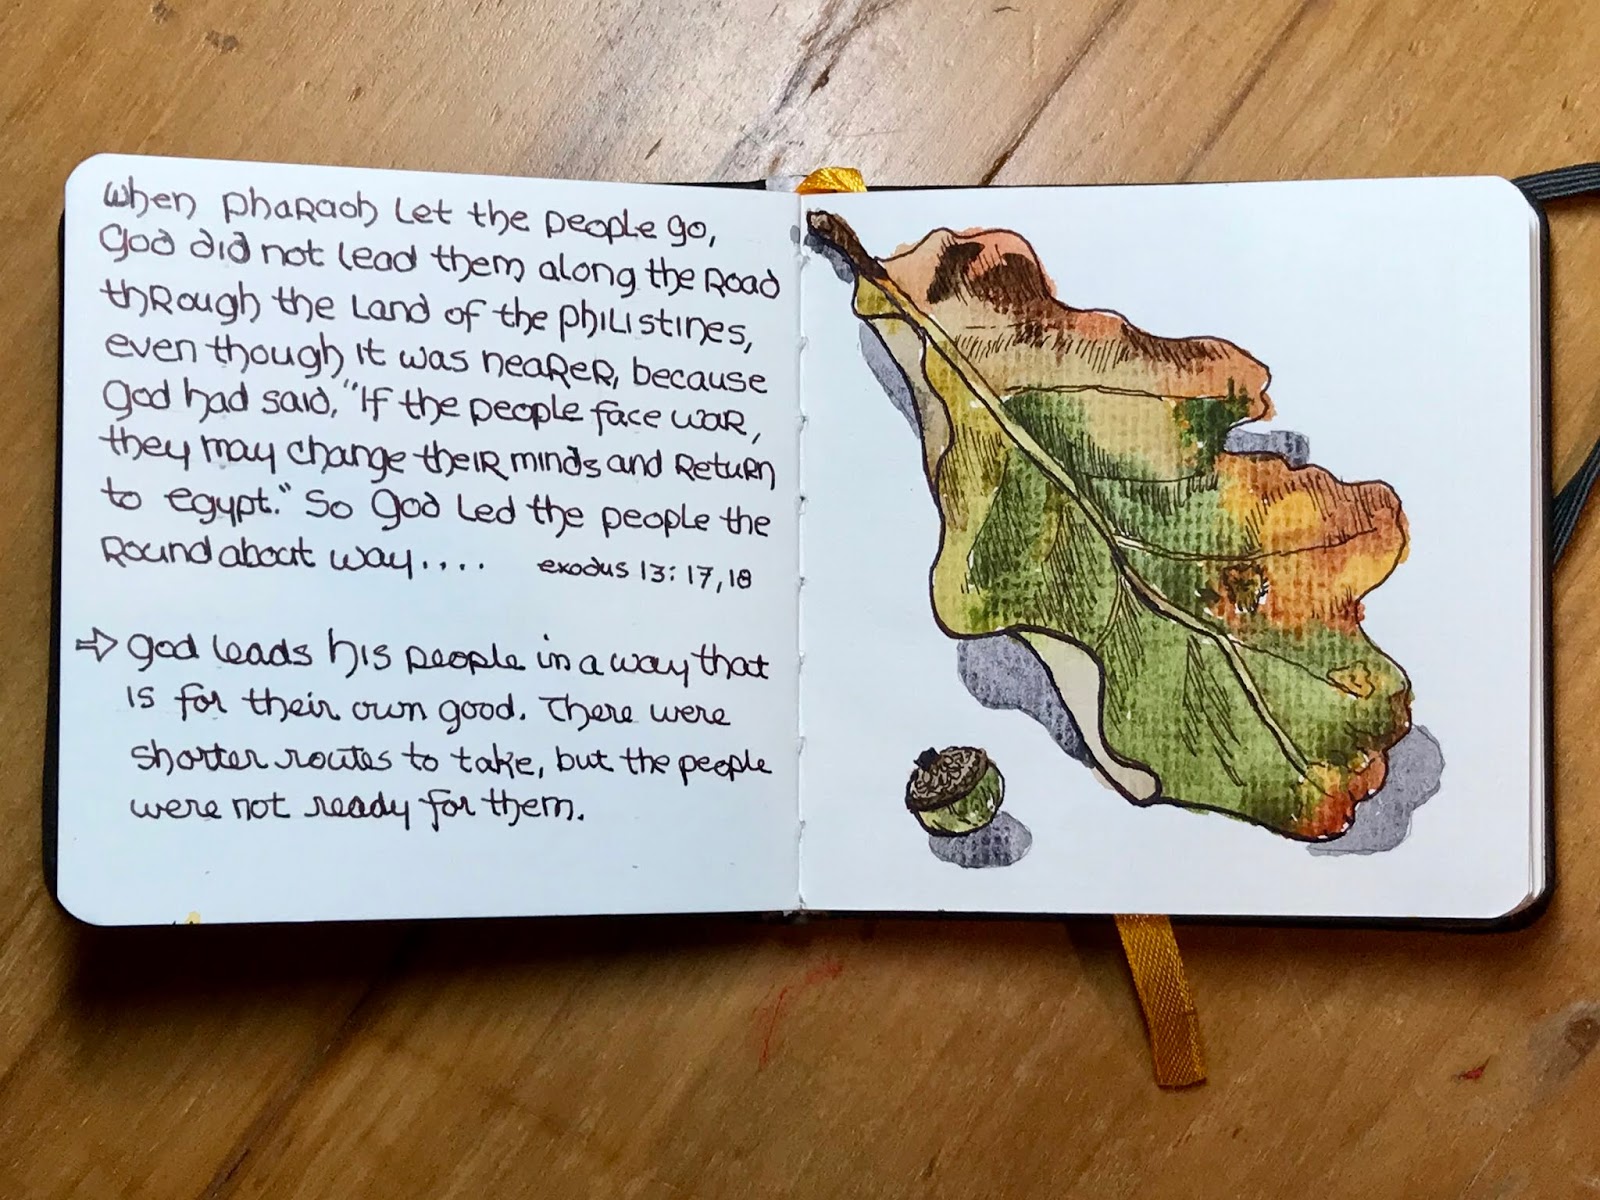 When Pharaoh let the people go,
God did not lead them along the road
through the land of the Philistines,
even though it was nearer, because
God had said, "If the people face war,
they may change their minds and return
to Egypt." So God led the people the
roundabout way....
exodus 13:17,18
⇨ God leads his people in a way that
is for their own good. There were
shorter routes to take, but the people
were not ready for them.